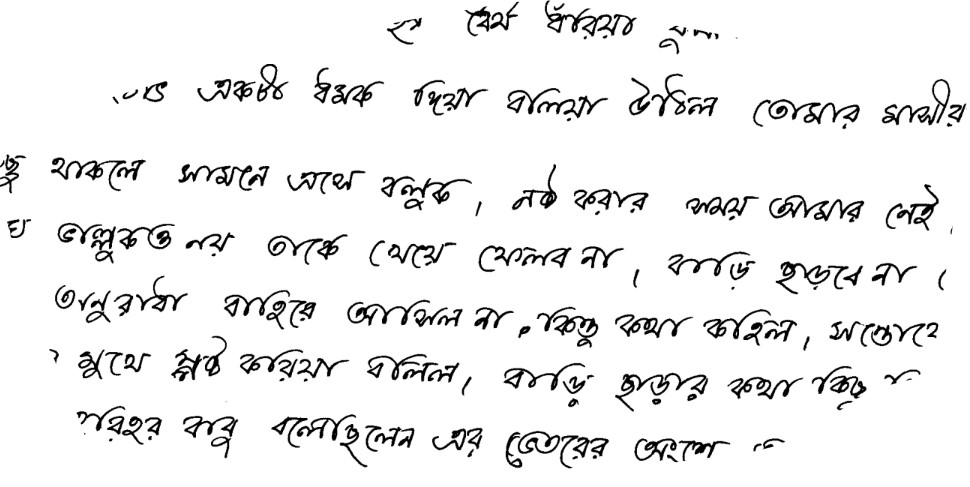 ধৈর্য ধরিয়া
একটা ধমক দিয়া বলিয়া উঠিল তোমার মাসীর
থাকলে সামনে এসে বলুক, নষ্ট করার সময় আমার নেই,
ভাল্লুকও নয় তাকে খেয়ে ফেলব না, বাড়ি ছাড়বে না।
অনুরাধা বাহিরে আসিল না, কিন্তু কথা কহিল, সন্তোষে
মুখে স্পষ্ট করিয়া বলিল, বাড়ি ছাড়ার কথা
বাবু বলেছিলেন এর ভেতরের অংশে